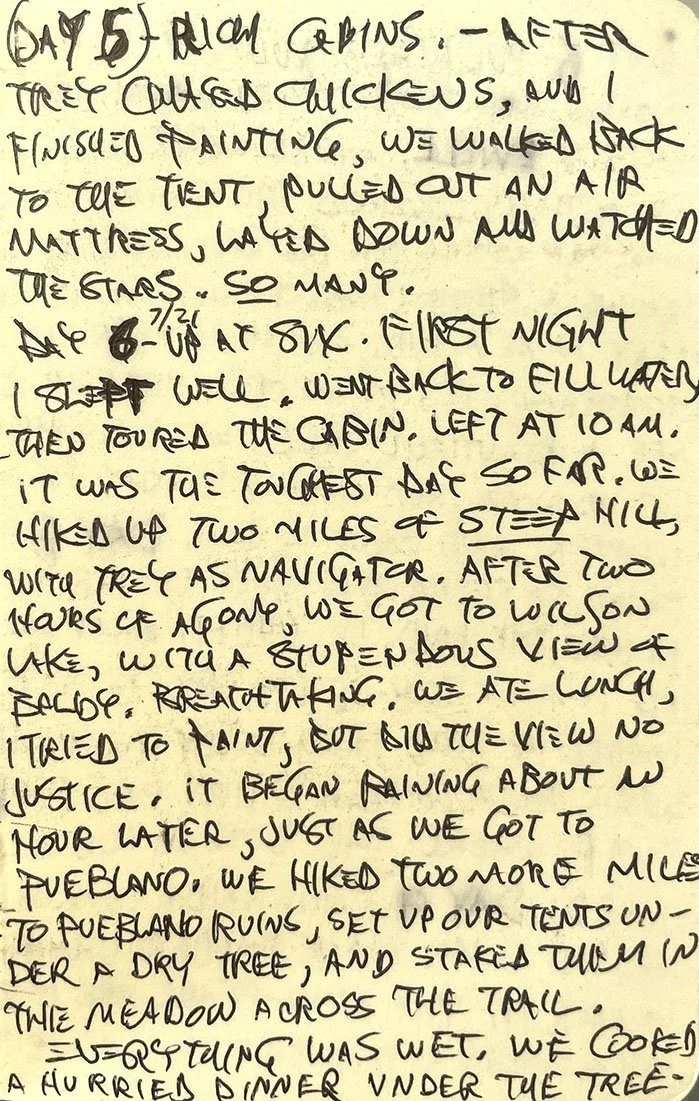 (DAY 5) - RICH CABINS. - AFTER
TREY CHASED CHICKENS, AND I
FINISHED PAINTING, WE WALKED BACK
TO THE TENT, PULLED OUT AN AIR
MATTRESS, LAYED DOWN AND WATCHED
THE STARS. SO MANY.
DAY 6 - 7/21 UP AT SIX. FIRST NIGHT
I SLEPT WELL. WENT BACK TO FILL WATER,
THEN TOURED THE CABIN. LEFT AT 10 AM.
IT WAS THE TOUGHEST DAY SO FAR. WE
HIKED UP TWO MILES OF STEEP HILL,
WITH TREY AS NAVIGATOR. AFTER TWO
HOURS OF AGONY, WE GOT TO WILSON
LAKE, WITH A STUPENDOUS VIEW OF
BALDY. BREATHTAKING. WE ATE LUNCH,
I TRIED TO PAINT, BUT DID THE VIEW NO
JUSTICE. IT BEGAN RAINING ABOUT AN
HOUR LATER, JUST AS WE GOT TO
PUEBLANO. WE HIKED TWO MORE MILES
TO PUEBLANO RUINS, SET UP OUR TENTS UN-
DER A DRY TREE, AND STAKED THEM IN
THE MEADOW ACROSS THE TRAIL.
EVERYTHING WAS WET. WE COOKED
A HURRIED DINNER UNDER THE TREE-